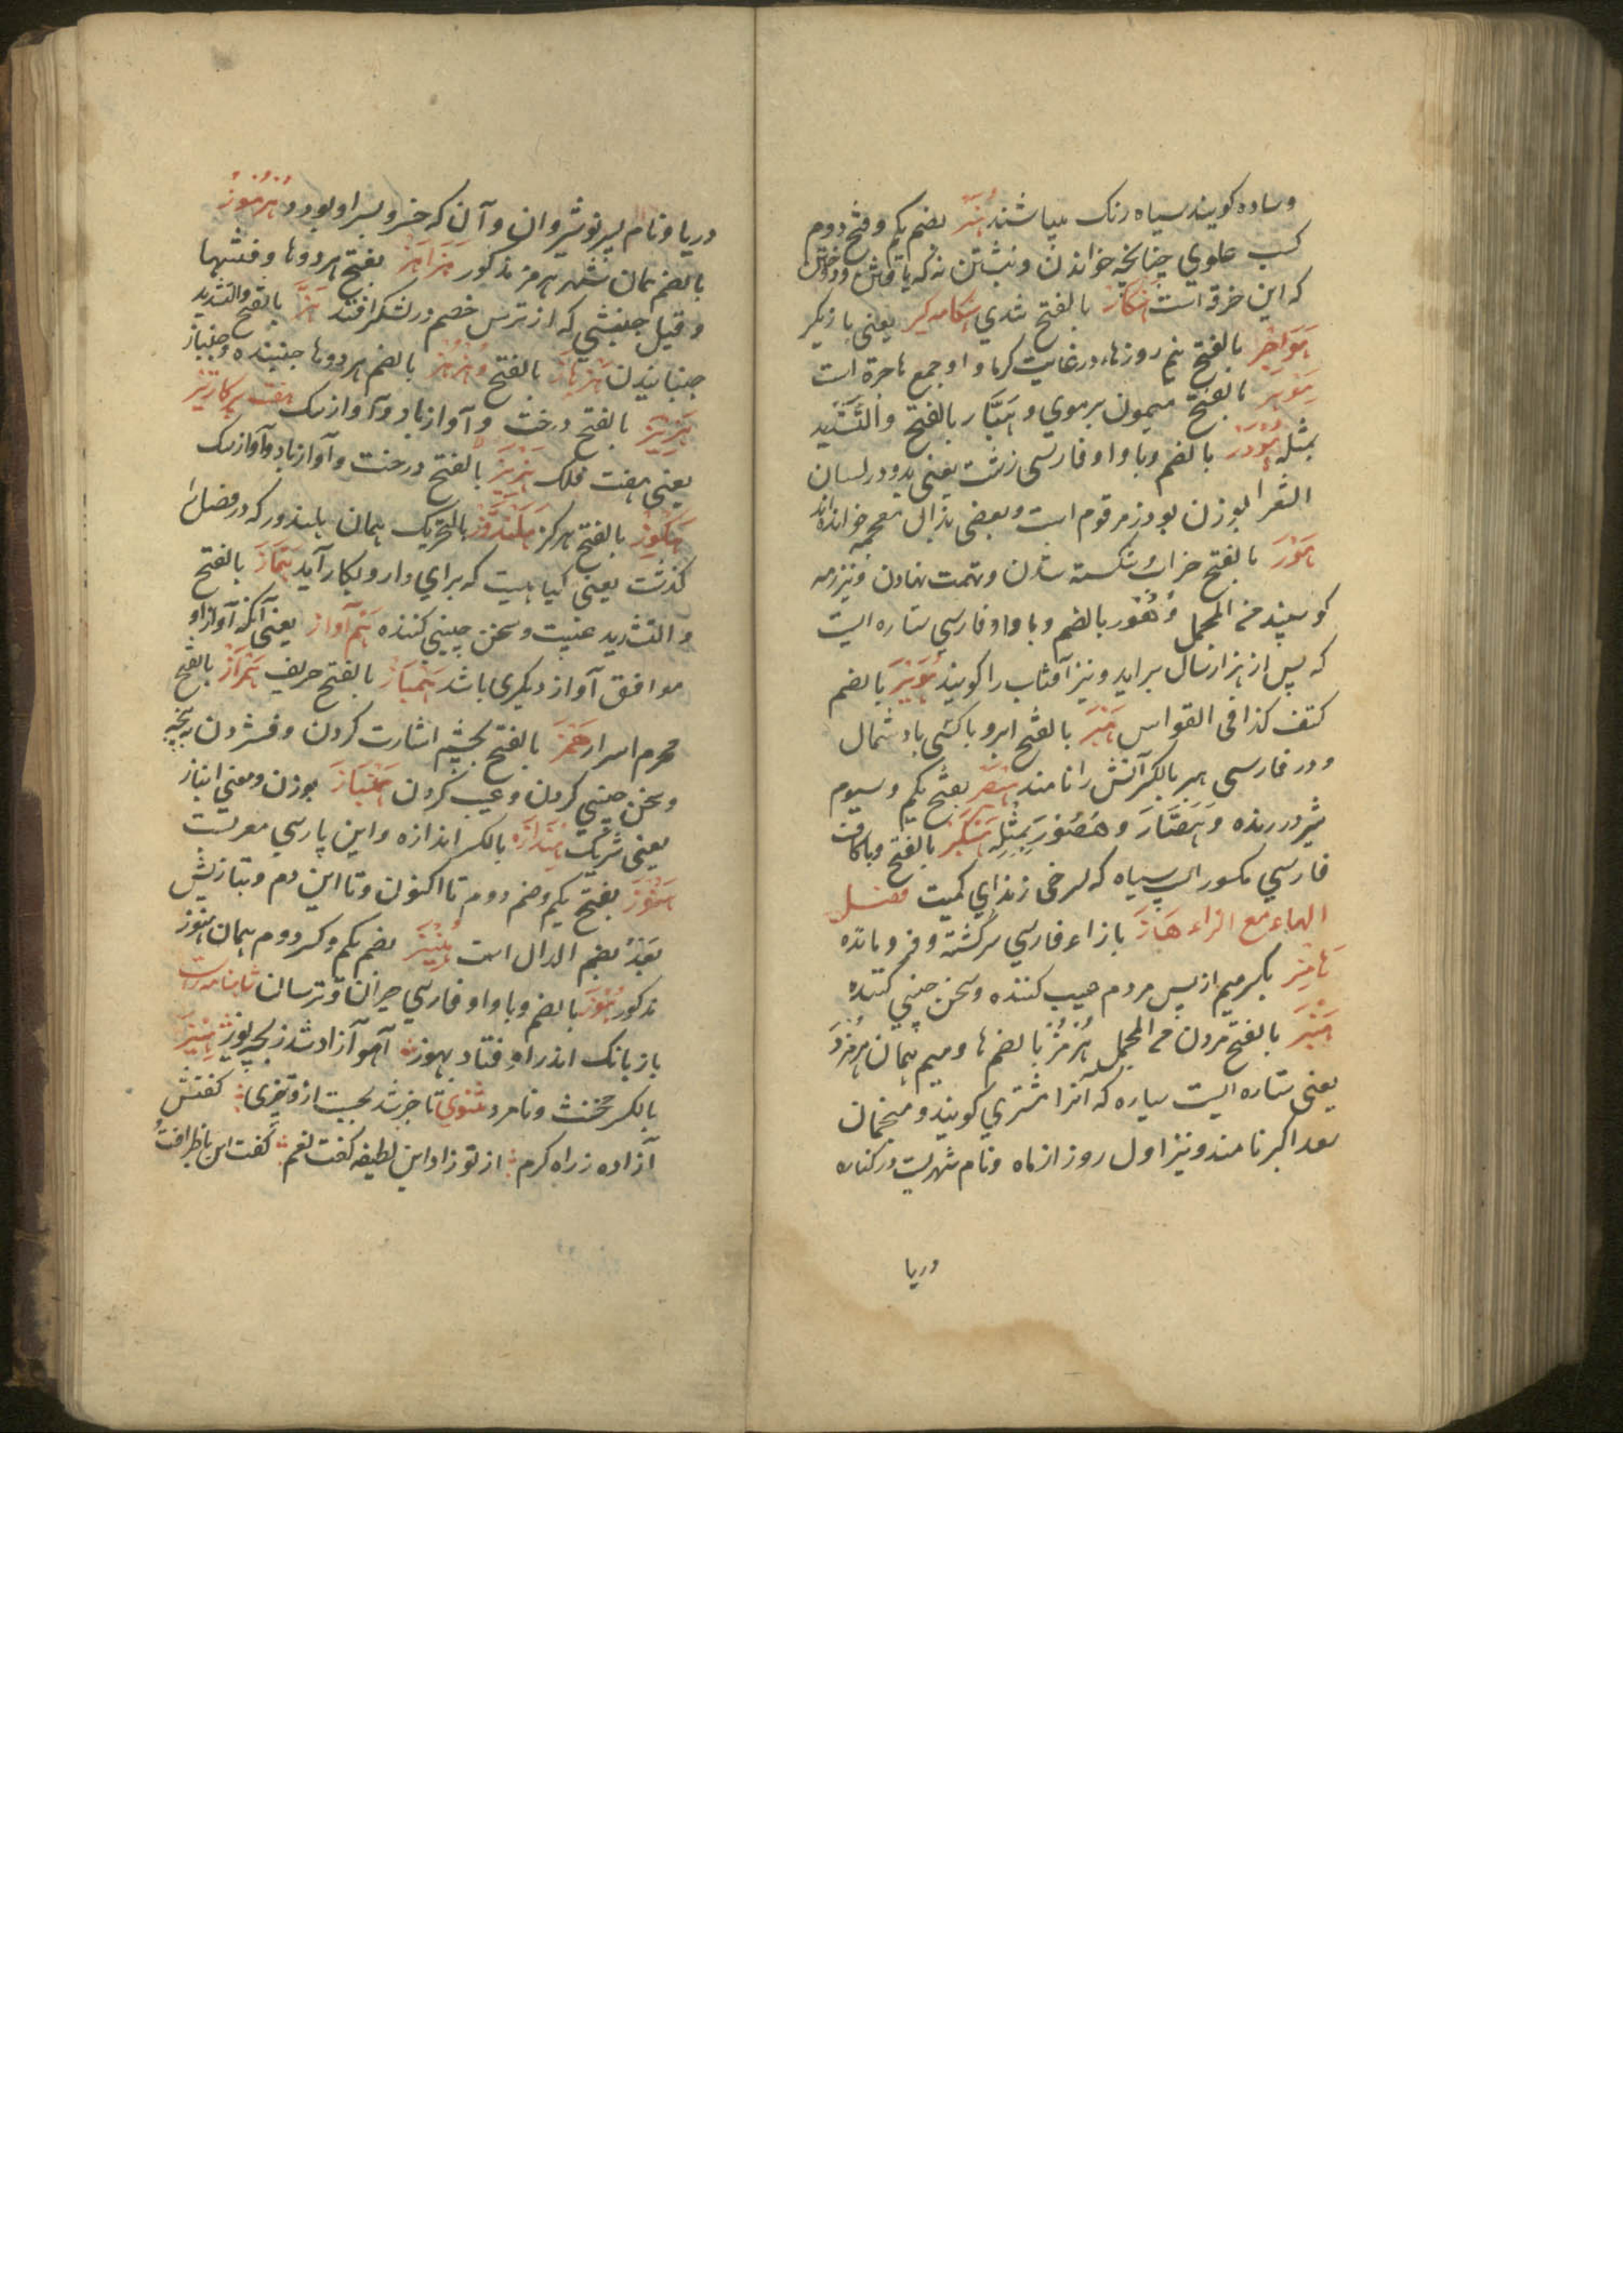 وساده کویند سیاه رنک میباشند هُنَر بضم یکم وفتح دوم
کسب علوی چنانچه خواندن ونبشتن نه که بافتن ودوختن
که این خرقه است هنکار بالفتح شدی هنکامه کیر یعنی بازیکر
هَوَاجِر بالفتح نیم روزها در غایت کرما واو جمع هاجرة است
هَوبَر بالفتح میمون بر موی وهَبَّار بالفتح والتَّشدید
بمثله هُودَر بالضم وباواو فارسی زشت یعنی بد ودر لسان
الشعرا بوزن بودر مرقوم است وبعضی بذال معجمه خوانده‌اند
هَوْر بالفتح خراب وشکسته شدن وتهمت نهادن ونیز رمه
کوسپند من المجمل وهُور بالضم وباواو فارسی ستاره ایست
که پس از هزار سال براید ونیز آفتاب را کویند هُوَیر بالضم
کتف کذا فی القواس هَیر بالفتح ابر وباکشی باد شمال
ودر فارسی هیر بالکسر آتش را نامند هَیصَر بفتح یکم وسیوم
شیر درنده وهَیصَّار وهَصُور بمثله هَنکیر بالفتح وباکاف
فارسی مکسور اسپ سیاه که بسرخی زند ای کمیت فصل
الهاء مع الزاء هَاژ بازاء فارسی سرکشته وفرومانده
هَامِز بکسر میم از پس مردم عیب کننده وسخن چینی کننده
هَبْز بالفتح مردن من المجمل هُرمُز بالضم ها ومیم همان هرمزد
یعنی ستاره ایست سیاره که آنرا مشتری کویند ومنجمان
سعد اکبر نامند ونیز اول روز از ماه ونام شهریست در کناره
دریا
دریا ونام پسر نوشیروان وآن که خسرو پسر او بود وهُرمُوز
بالضم همان شهر هرمز مذکور هَزَاهِز بفتح هر دوها وفتنها
وقیل جنبشی که از ترس خصم در لشکر افتد هَزّ بالفتح والتشدید
جنبانیدن هَزهَاز بالفتح وهُزهُز بالضم هر دوها جنبنده وجنباز
هَزِیز بالفتح درخت وآواز باد وآواز دیک هفت پرکار تیز
یعنی هفت فلک هَزِیز بالفتح درخت وآواز باد وآواز دیک
هَکُوز بالفتح هرکز هَلَندَوز بالتحریک همان بلندور که در فصل
کذشت یعنی کیاهیست که برای دارو بکار آید هَمَّاز بالفتح
والتشدید غیبت وسخن چینی کننده هم آواز یعنی آنکه آواز او
موافق آواز دیکری باشد هَمبَاز بالفتح حریف همراز بالفتح
محرم اسرار هَمز بالفتح بچشم اشارت کردن وفشردن به پنجه
وسخن چینی کردن وعیب کردن هَنبَاز بوزن ومعنی انباز
یعنی شریک هِندَازَه بالکسر اندازه واین پارسی معربست
هَنُوز بفتح یکم وضم دوم تا اکنون وتا این دم وبتازیش
بَعدُ بضم الدال است هُنیز بضم یکم وکسر دوم همان هنوز
مذکور هُوز بالضم وباواو فارسی حیران وترسان شاهنامه راست
باز بانک اندر او فتاد بهوز ؞ آهو آزاد شد ز پنجه یوز هِیز
بالکسر مخنث ونامرد مثنوی تا خبر شد بجست از و چیزی ؞ کفتش
آزاده ز راه کرم ؞ از تو زاد این لطیفه کفت نعم ؞ کفت این با ظرافت